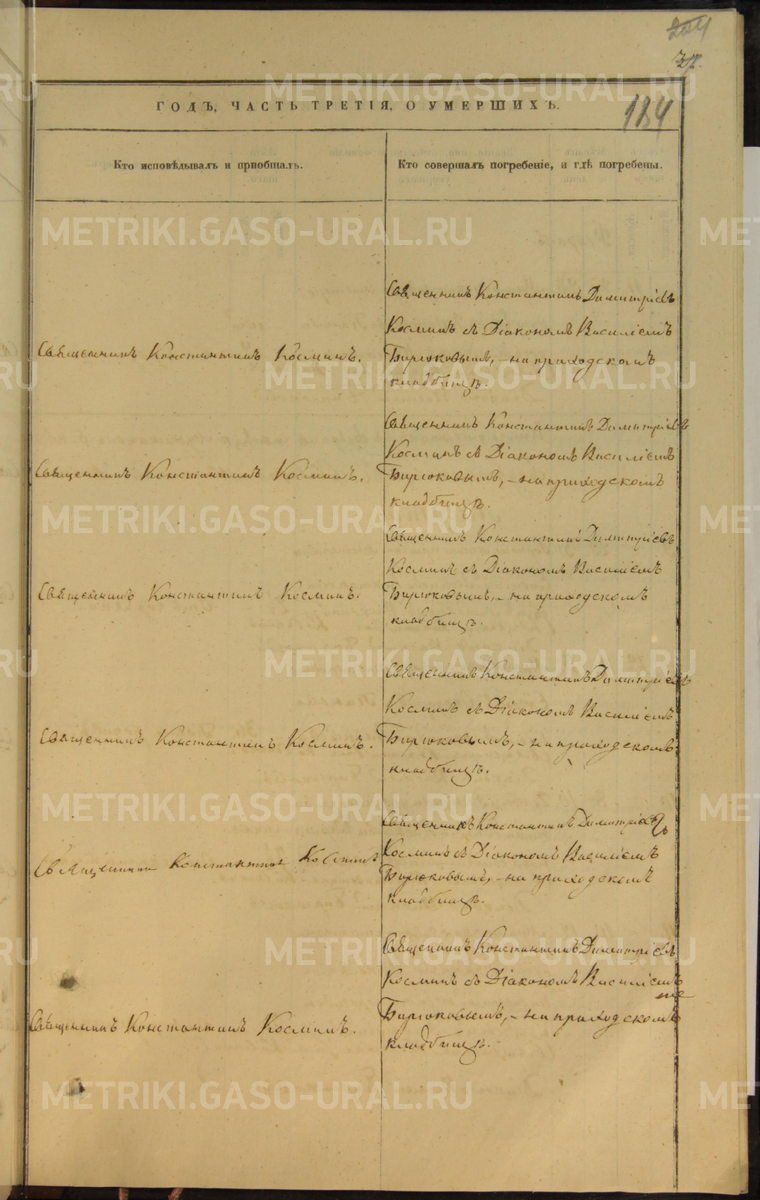 204
184
ГОДЪ, ЧАСТЬ ТРЕТІЯ, О УМЕРШИХЪ.
Кто исповѣдывалъ и пріобщалъ.
Кто совершалъ погребеніе, и гдѣ погребены.
Священникъ Константинъ Косминъ.
Священникъ Константинъ Димитріевъ
Косминъ съ Діакономъ Василіемъ
Бирюковымъ, – на приходскомъ
кладбищѣ.
Священникъ Константинъ Косминъ.
Священникъ Константинъ Димитріевъ
Косминъ съ Діакономъ Василіемъ
Бирюковымъ, – на приходскомъ
кладбищѣ.
Священникъ Константинъ Косминъ.
Священникъ Константинъ Димитріевъ
Косминъ съ Діакономъ Василіемъ
Бирюковымъ, – на приходскомъ
кладбищѣ.
Священникъ Константинъ Косминъ.
Священникъ Константинъ Димитріевъ
Косминъ съ Діакономъ Василіемъ
Бирюковымъ, – на приходскомъ
кладбищѣ.
Священникъ Константинъ Косминъ
Священникъ Константинъ Димитріевъ
Косминъ съ Діакономъ Василіемъ
Бирюковымъ, – на приходскомъ
кладбищѣ.
Священникъ Константинъ Косминъ.
Священникъ Константинъ Димитріевъ
Косминъ съ Діакономъ Василіемъ
Бирюковымъ, – на приходскомъ
кладбищѣ.
METRIKI.GASO-URAL.RU